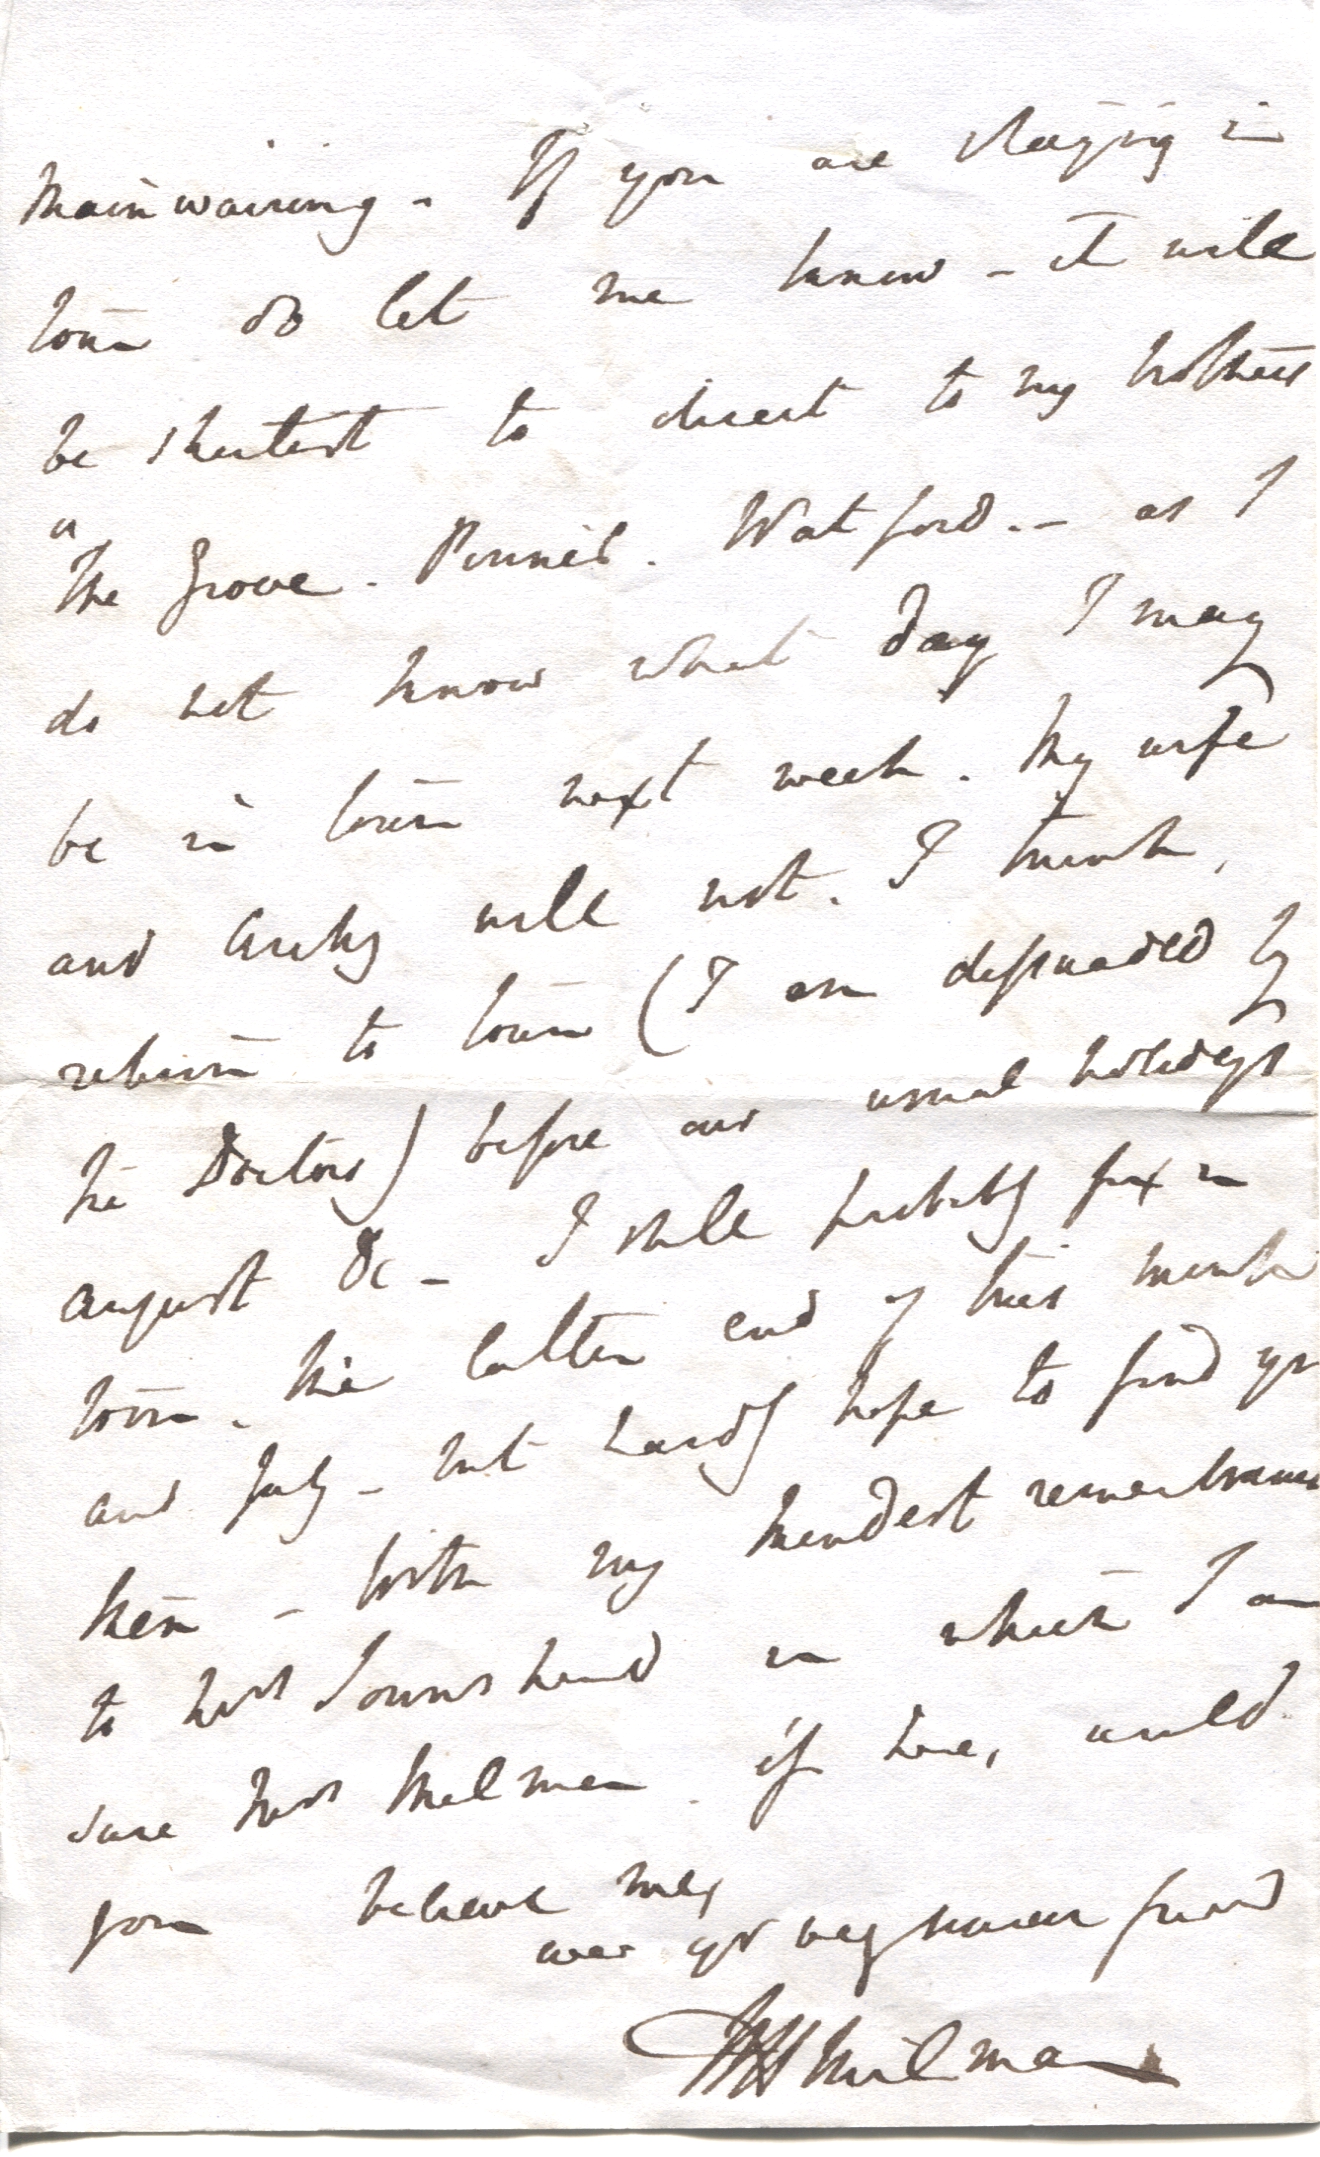 Mainwaring - If you are staying in
town do let me know - it will
be shortest to direct to my brothers
"The Grove - Pinner. Watford. - as I
do not know what day I may
be in town next week. My wife
and Archy will not, I think,
return to town (I am dissuaded by
the Doctors) before our usual holidays
August &c - I shall probably fix in
town, the latter end of this month
and July - but hardly hope to find yr
then - With my kindest remembrances
to Mrs Townshend in which I am
sure Mrs Milman if here, would
join believe me,
ever yr very sincere friend
Milman